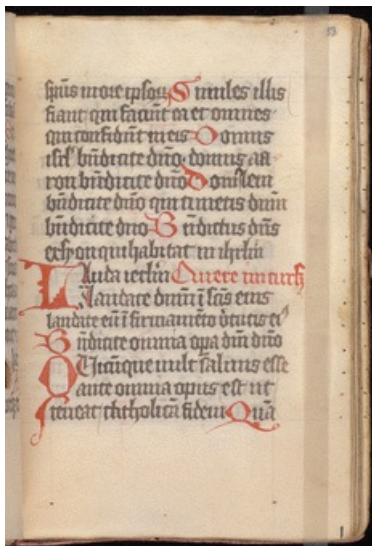 53
spūs in ore ipsoꝝ Similes illis
fiant qui faciūt ea et omnes
qui confidūt in eis Domus
isrl' bn̄dicite dn̄o domus aa
ron bn̄dicite dn̄o Dom leui
bn̄dicite dn̄o qui timetis dnm
bn̄dicite dno Bn̄dictus dn̄s
ex syon qui habitat in ihrlm
Lauda ierlm Quere in
Laudate dnm ī scīs eius
laudate eū ī firmamēto v̄tutis ei⁹
Bn̄dicite omnia opa dnī dn̄o
Quicūque uult saluus esse
ante omnia opus est ut
teneat chtholicā fidem Quā